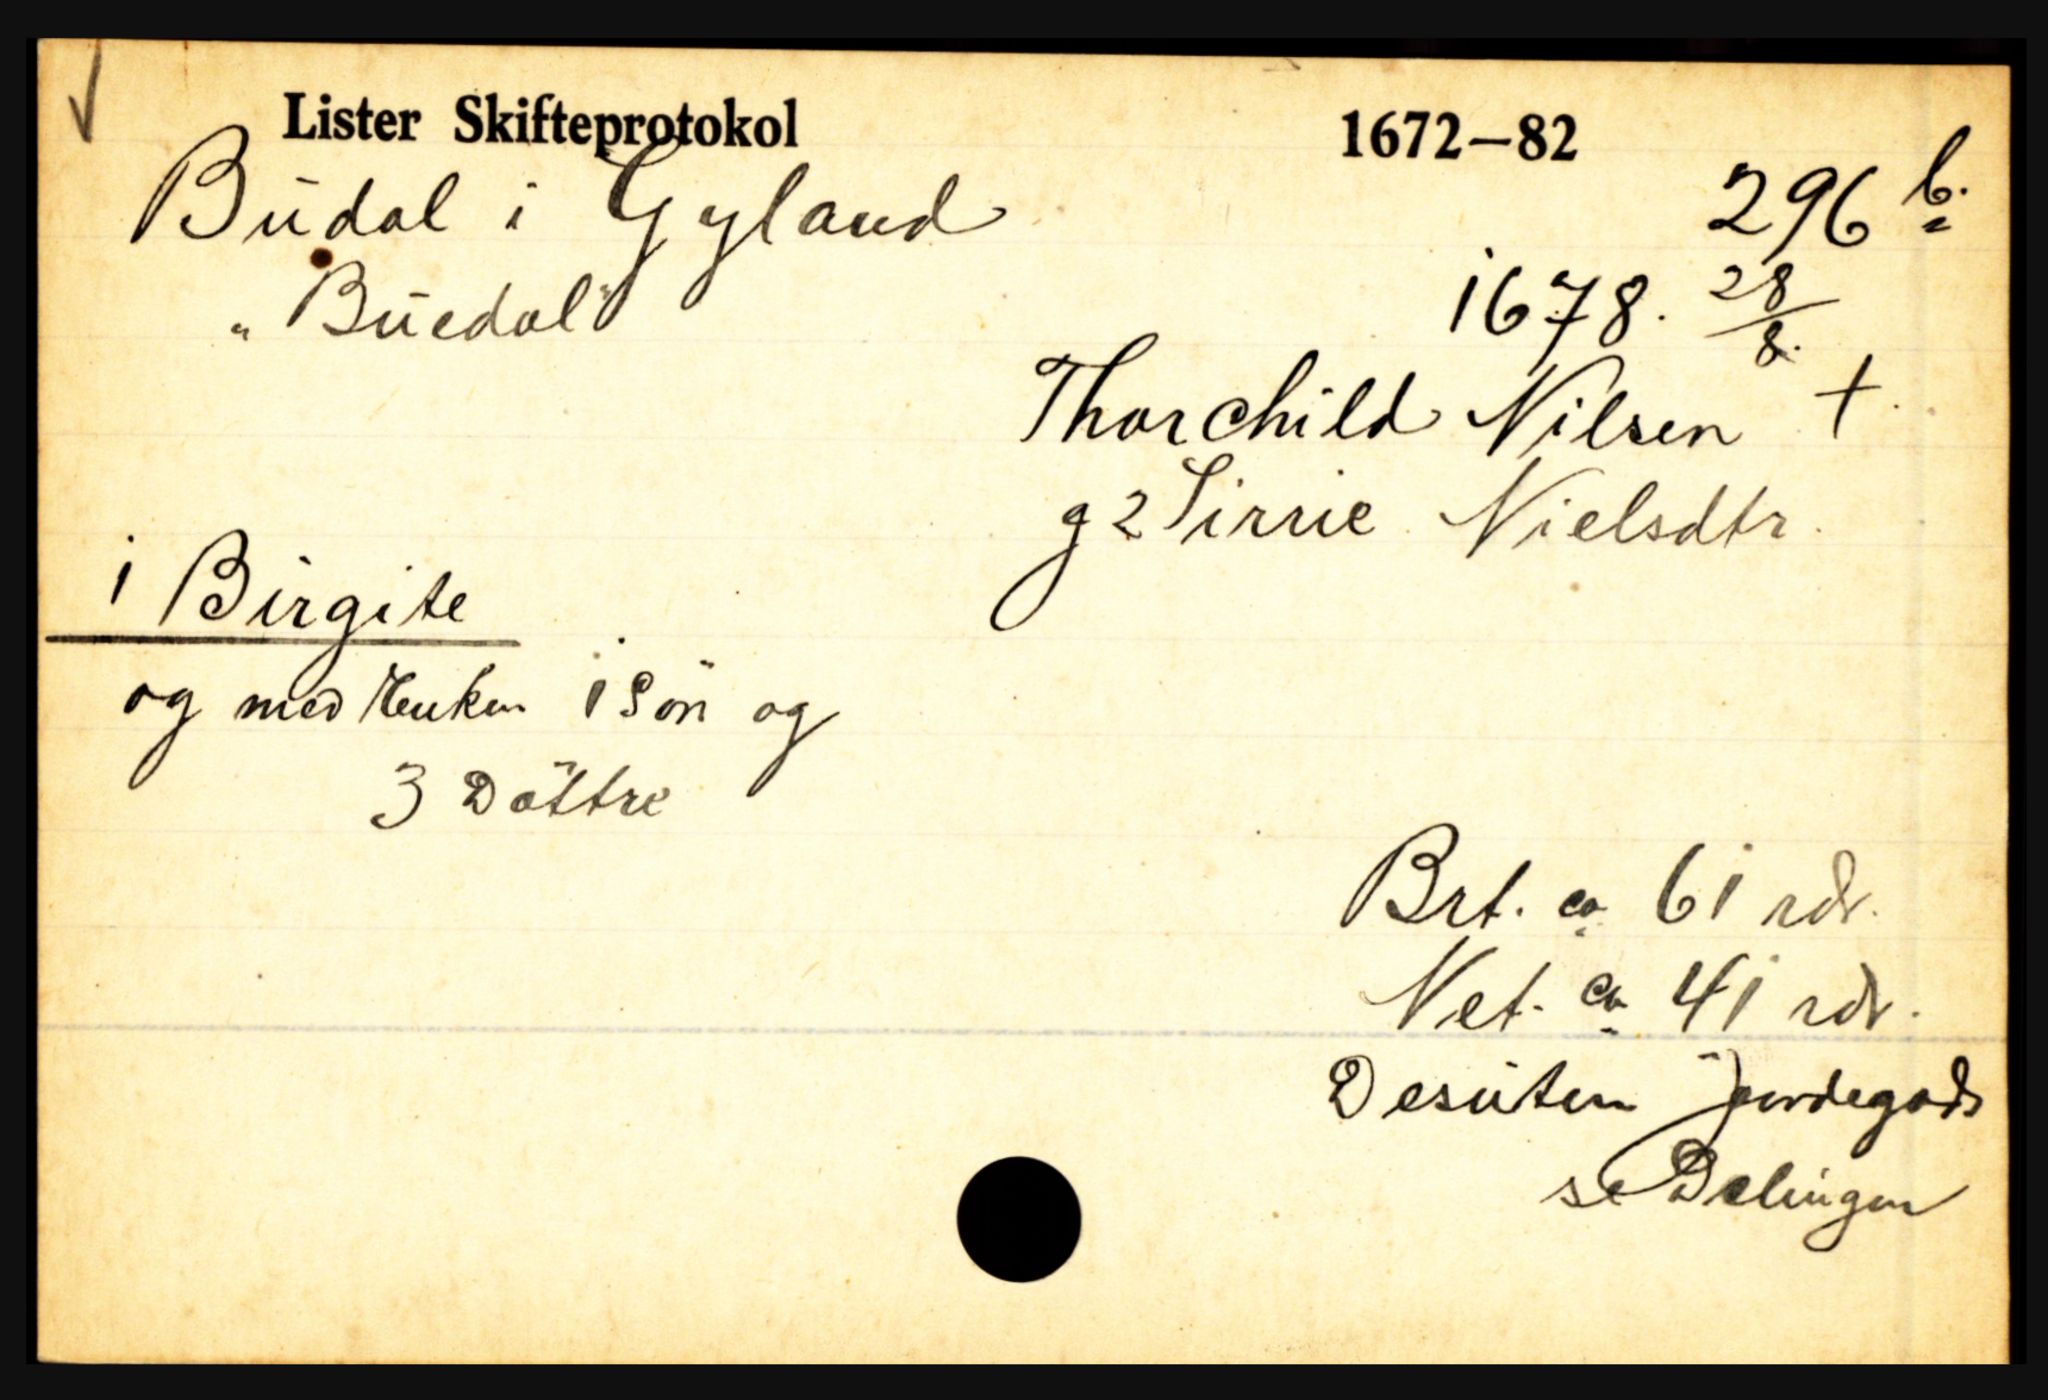 Lister Skifteprotokol 1672–82
Büdal i Gyland 296 b.
„Büedal" 1678. 28/8.
Thorchild Nilsen †
g 2 Sirrie Nielsdtr.
1 Birgite
og med Enken 1 Sön og
3 Döttre
Brt. ca 61 rdr.
Net. ca 41 rdr.
Desüten Jordegods
se Delingen